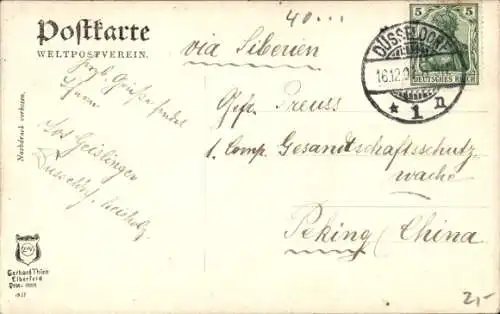 40...
Postkarte
WELTPOSTVEREIN.
via Siberien
5 5
DÜSSELDORF
16.12.0
* 1 n
DEUTSCHES REICH
herzl. Grüße sendet
Ihnen
Jos Geislinger
Gefr. Preuss
1. Comp. Gesandtschaftsschutz
wache
Peking (China
Nachdruck verboten.
Gerhard Thien
Elberfeld
2,-